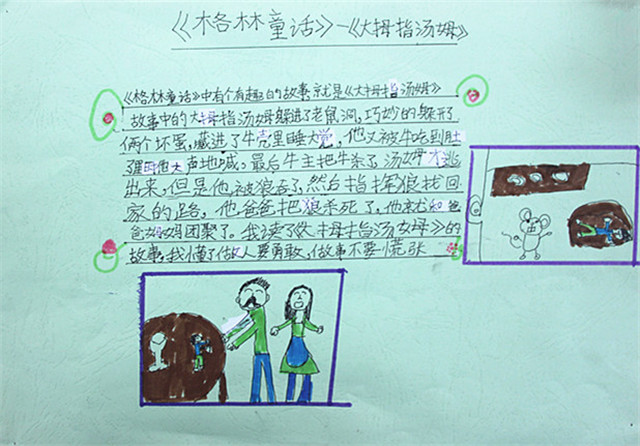 《格林童话》—《大拇指汤姆》
《格林童话》中有个有趣的故事就是《大拇指汤姆》
故事中的大拇指汤姆躲进了老鼠洞,巧妙的躲开了
俩个坏蛋,藏进了牛壳里睡大觉,他又被牛吃到肚
子里他大声地喊。最后牛主把牛杀了,汤姆才逃
出来,但是他被狼吞了,然后指挥狼找回
家的路,他爸爸把狼杀死了,他就和爸
爸妈妈团聚了。我读了《大拇指汤姆》的
故事,我懂了做人要勇敢,做事不要慌张